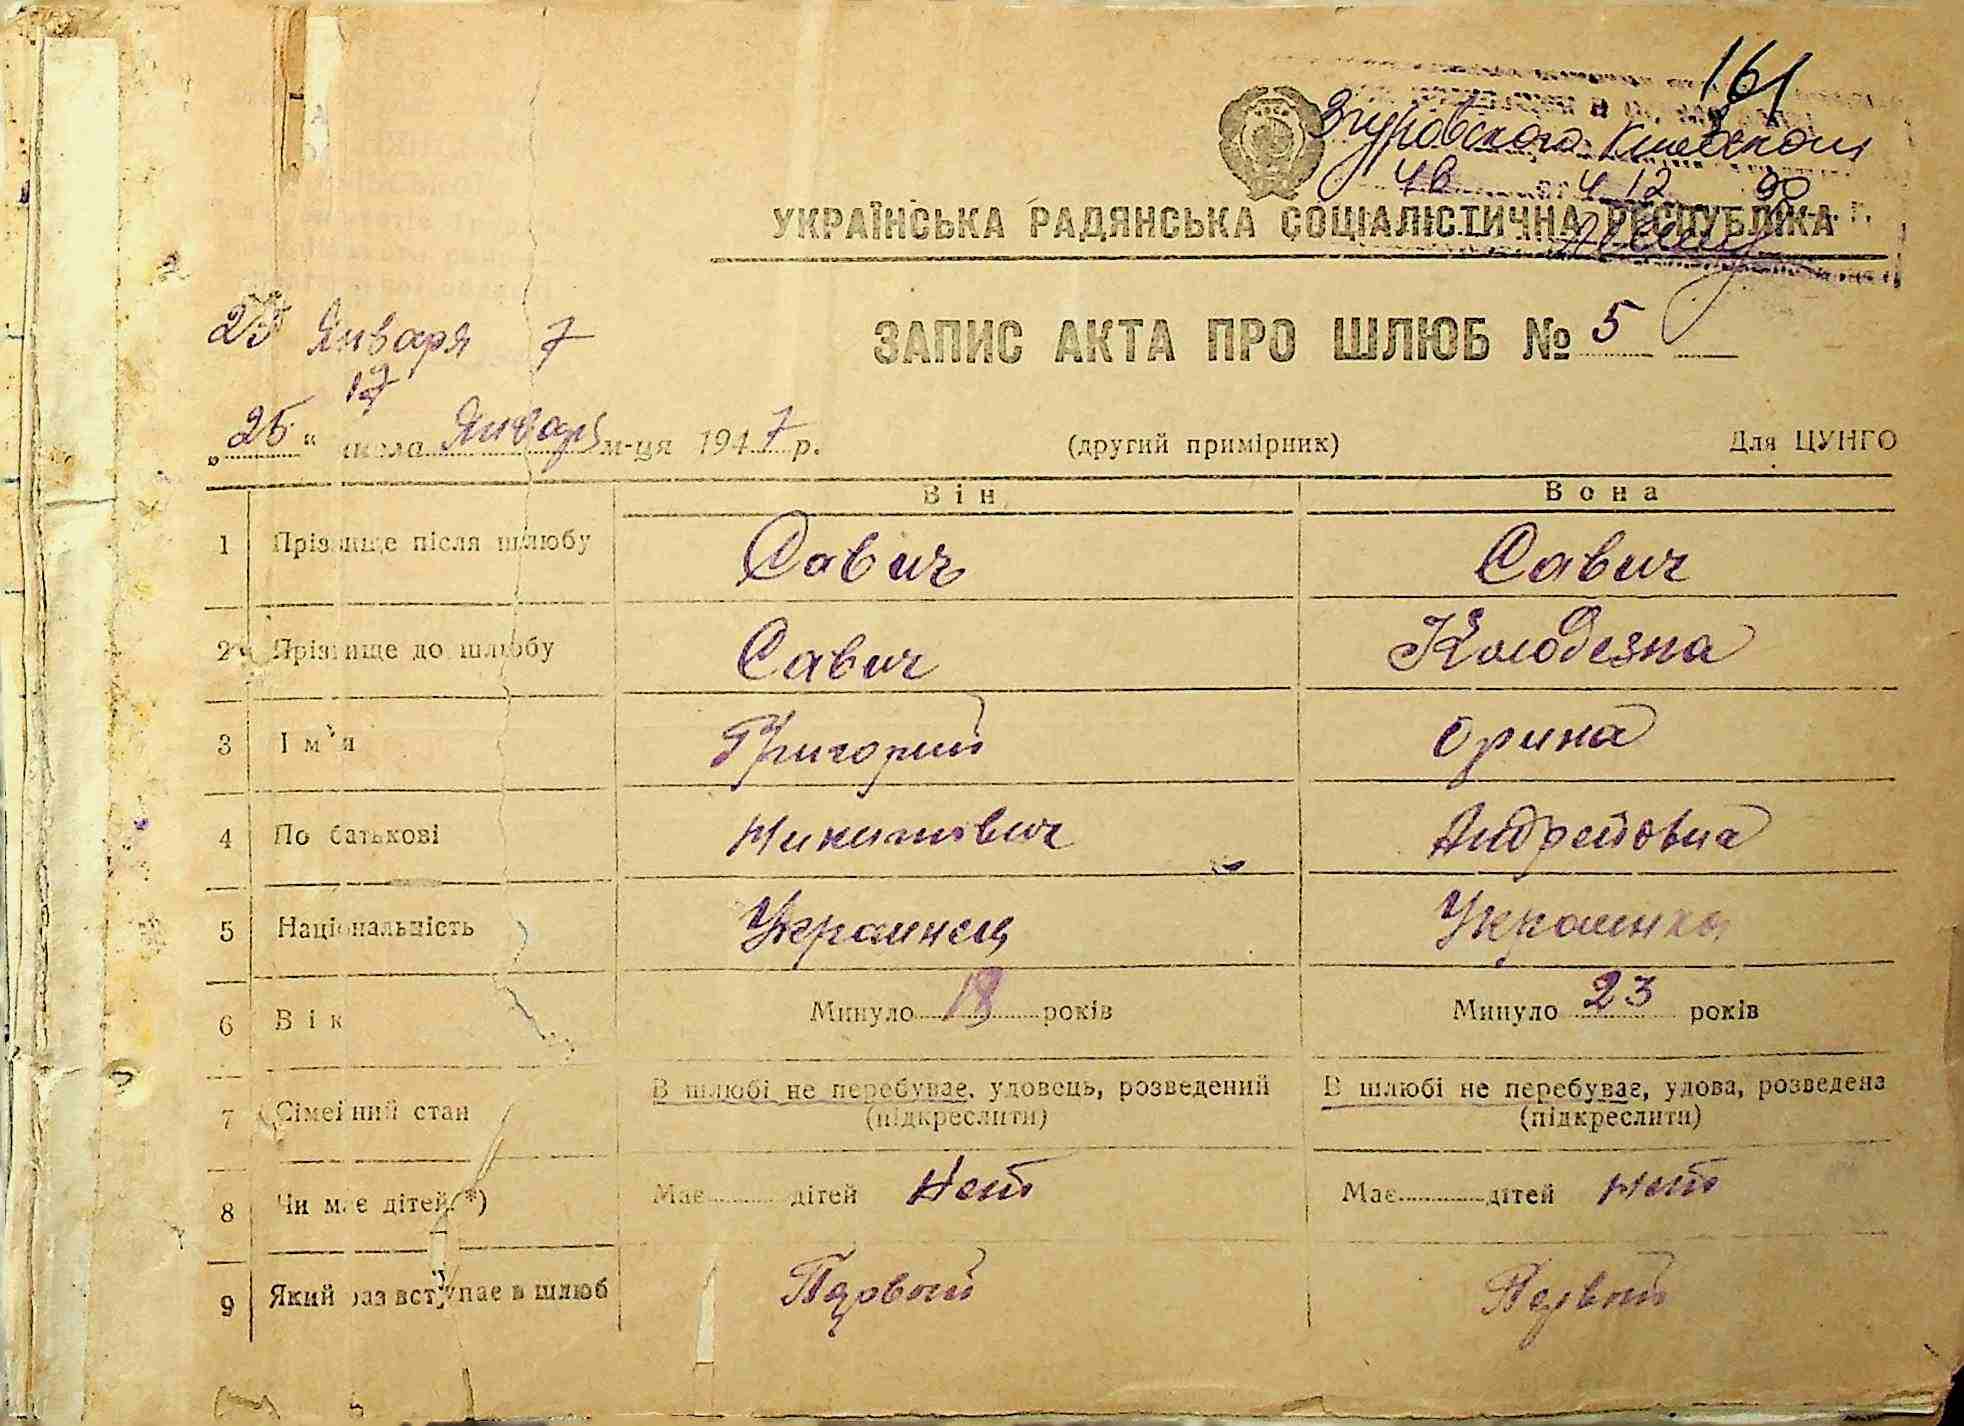 161
Згуровского Киевской
4в 4 12 90
УКРАЇНСЬКА РАДЯНСЬКА СОЦІАЛІСТИЧНА РЕСПУБЛІКА
25 Января 7
ЗАПИС АКТА ПРО ШЛЮБ № 5
17
„25“ числа Января м-ця 1947 р. (другий примірник) Для ЦУНГО
Він Вона
1 Прізвище після шлюбу Савич Савич
2 Прізвище до шлюбу Савич Колодезна
3 Ім'я Григорий Орина
4 По батькові Никитович Андреевна
5 Національність Украинец Украинка
6 Вік Минуло 18 років Минуло 23 років
7 Сімейний стан В шлюбі не перебуває, удовець, розведений В шлюбі не перебуває, удова, розведена
(підкреслити) (підкреслити)
8 Чи має дітей *) Має дітей Нет Має дітей Нет
9 Який раз вступає в шлюб Первый Первый